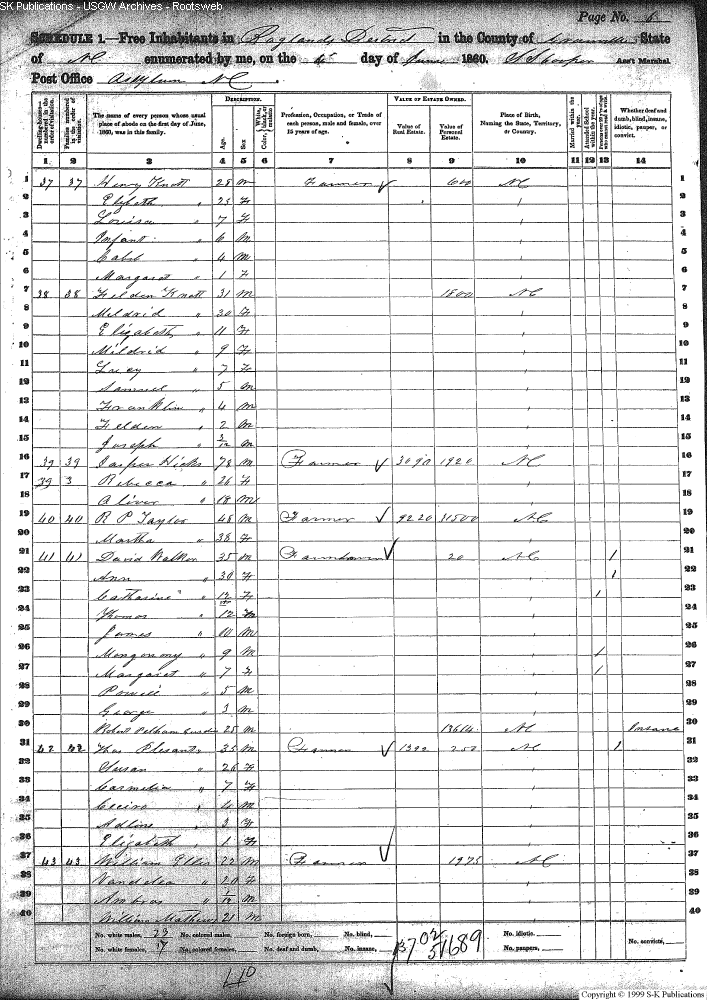 SK Publications - USGW Archives - Rootsweb
Page No. 6
SCHEDULE 1.—Free Inhabitants in Raglands District in the County of Granville State
of NC enumerated by me, on the day of June 1860. Ass't Marshal.
Post Office NC
Dwelling-houses—numbered in the order of visitation.
Families numbered in the order of visitation.
The name of every person whose usual place of abode on the first day of June, 1860, was in this family.
DESCRIPTION.
Age.
Sex.
White, black, or mulatto.
Profession, Occupation, or Trade of each person, male and female, over 15 years of age.
VALUE OF ESTATE OWNED.
Value of Real Estate.
Value of Personal Estate.
Place of Birth, Naming the State, Territory, or Country.
Married within the year.
Attended School within the year.
Whether deaf and dumb, blind, insane, idiotic, pauper, or convict.
1 2 3 4 5 6 7 8 9 10 11 12 13 14
1 37 37 Henry Knott 28 m Farmer 600 NC 1
2 Elizbeth " 25 F 2
3 Louisa " 7 F 3
4 Infant " 6 m 4
5 " 4 m 5
6 Margaret " 1 F 6
7 38 38 Fielden Knott 31 m 1800 NC 7
8 Mildrid " 30 F 8
9 Elizabeth " 11 F 9
10 Mildrid " 9 F 10
11 Lucy " 7 F 11
12 Samuel " 5 m 12
13 Franklin " 4 m 13
14 Felden " 2 m 14
15 Joseph " 3/12 m 15
16 39 39 Jasper Hicks 78 m Farmer 3090 1920 NC 16
17 39 3 Rebecca " 26 F 17
18 Oliver " 18 m 18
19 40 40 R P Taylor 48 m Farmer 9220 31500 NC 19
20 Martha " 38 F 20
21 41 41 David 35 m 20 NC 1 21
22 Ann " 30 F 1 22
23 Catharine " F 1 23
24 Thomas " 12 m 24
25 James " 10 m 25
26 Mongomry " 9 m 1 26
27 Margaret " 7 F 1 27
28 Powell " 5 m 28
29 George " 3 m 29
30 Robert Pelham 25 m 13614 NC Insane 30
31 42 42 Thos Plesants 35 m Farmer 1392 250 NC 1 31
32 Susan " 26 F 32
33 Carmelia " 7 F 33
34 " 4 m 34
35 Adline " 3 F 35
36 Elizabeth " 1 F 36
37 43 43 William Ellis 22 m Farmer 1975 NC 37
38 " 20 F 38
39 Ambros " m 39
40 William Mathews 21 m 40
No. white males, 23 No. colored males, No. foreign born, No. blind, No. idiotic,
No. white females, 17 No. colored females, No. deaf and dumb, No. insane, 13702 51689 No. paupers, No. convicts,
40
Copyright © 1999 S-K Publications